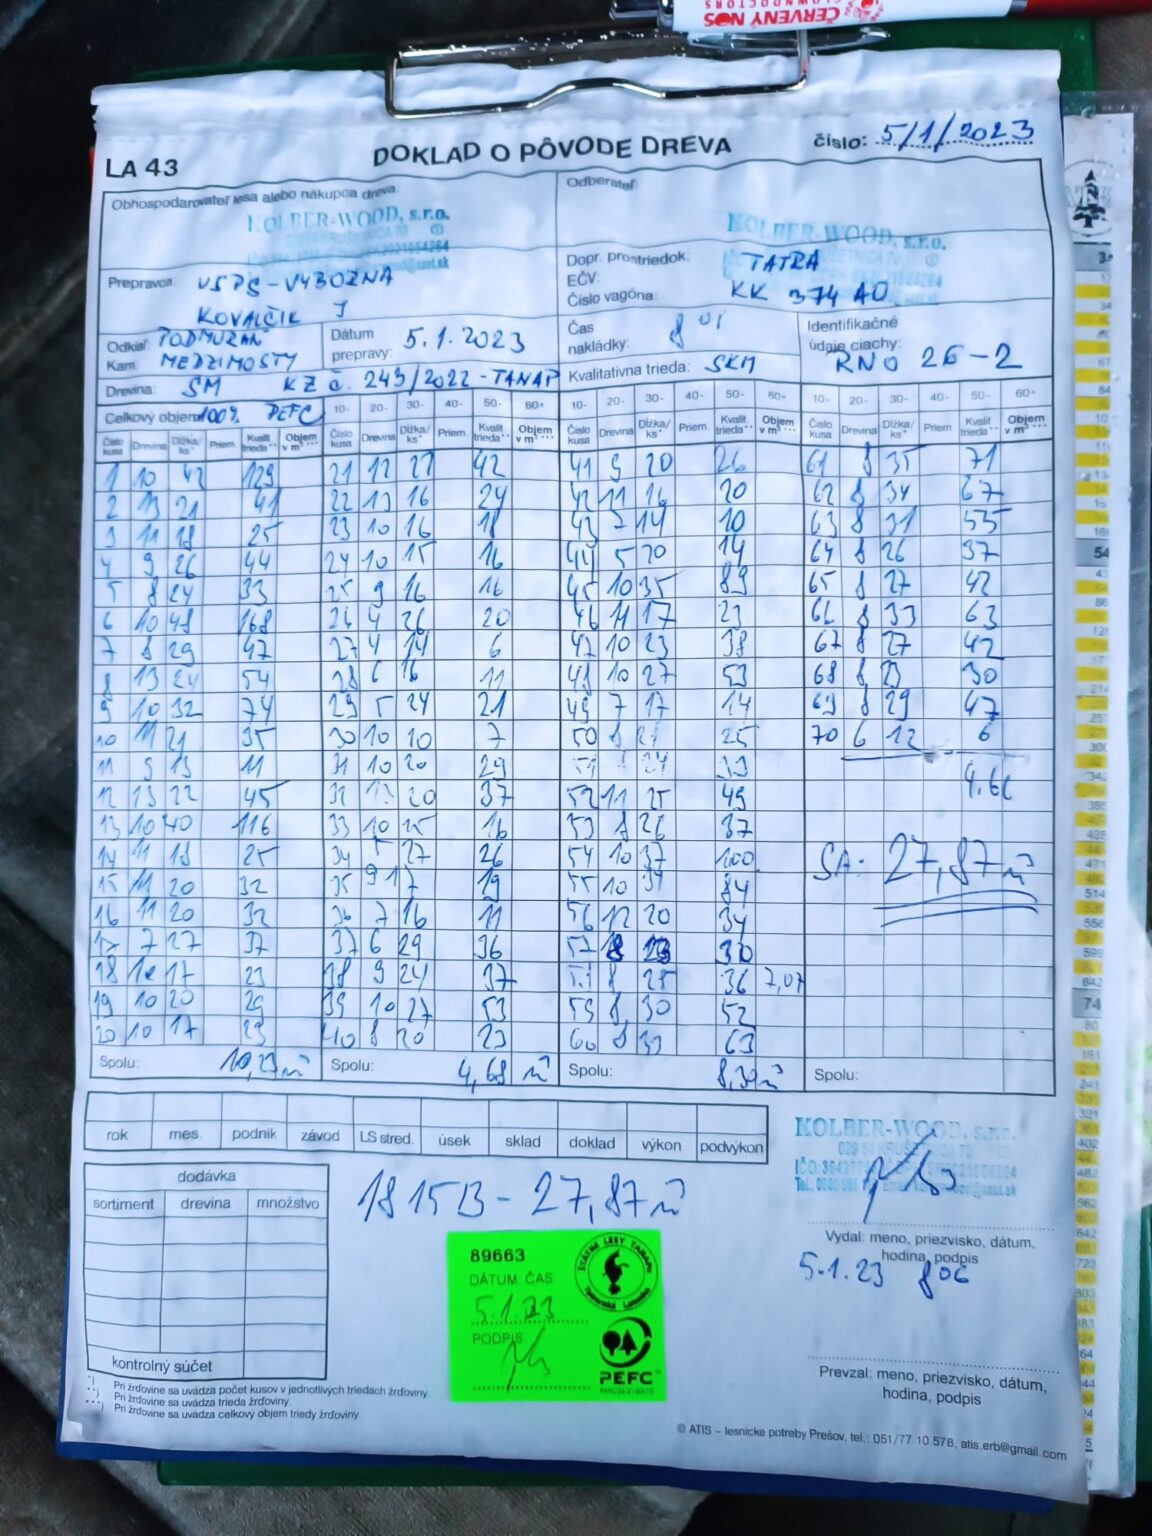 ČERVENÝ NOS
CLOWNDOCTORS
LA 43
DOKLAD O PÔVODE DREVA
číslo: 5/1/2023
Obhospodarovateľ lesa alebo nákupca dreva:
KOLBER-WOOD, s.r.o.
Odberateľ:
KOLBER-WOOD, s.r.o.
Prepravca: USPS-VYBOZNA
KOVALČIK J
Dopr. prostriedok: TATRA
EČV: KK 374 AO
Číslo vagóna:
Odkiaľ: PODMUZAŇ
Kam: MEDZIMOSTY
Dátum prepravy: 5.1.2023
Čas nakládky: 8 01
Identifikačné údaje ciachy: RNO 26-2
Drevina: SM KZ č. 243/2022-TANAP
Kvalitatívna trieda: SKM
Celkový objem 100% PEFC
10- 20- 30- 40- 50- 60+
10- 20- 30- 40- 50- 60+
10- 20- 30- 40- 50- 60+
Číslo kusa Drevina Dĺžka/ks* Priem. Kvalit trieda** Objem v m³***
Číslo kusa Drevina Dĺžka/ks* Priem. Kvalit trieda** Objem v m³***
Číslo kusa Drevina Dĺžka/ks* Priem. Kvalit trieda** Objem v m³***
Číslo kusa Drevina Dĺžka/ks* Priem. Kvalit trieda** Objem v m³***
1 10 42 129 21 12 27 42 41 9 20 26 61 8 35 71
2 13 21 41 22 13 16 24 42 11 16 20 62 8 34 67
3 11 18 25 23 10 16 18 43 7 14 10 63 8 31 55
4 9 26 44 24 10 15 16 44 5 20 14 64 8 26 37
5 8 24 33 25 9 16 16 45 10 35 89 65 8 27 42
6 10 48 168 26 4 26 20 46 11 17 23 66 8 33 63
7 8 29 47 27 4 14 6 47 10 23 38 67 8 27 42
8 13 24 54 28 6 16 11 48 10 27 53 68 8 23 30
9 10 32 74 29 5 24 21 49 7 17 14 69 8 29 47
10 11 21 35 30 10 10 7 50 8 21 25 70 6 12 6
11 9 13 11 31 10 20 29 51 24 33 4,60
12 13 22 45 32 13 20 37 52 11 25 49
13 10 40 116 33 10 15 16 53 8 26 37
14 11 18 25 34 5 27 26 54 10 37 100 SA: 27,87 m³
15 11 20 32 35 9 17 19 55 10 34 84
16 11 20 32 36 7 16 11 56 12 20 34
17 7 27 37 37 6 29 36 57 8 23 30
18 10 17 23 38 9 24 37 8 25 36 7,07
19 10 20 29 39 10 27 53 59 8 30 52
20 10 17 23 40 8 20 23 60 8 33 63
Spolu: 10,23 m³ Spolu: 4,68 m³ Spolu: 8,30 m³ Spolu:
rok mes. podnik závod LS stred. úsek sklad doklad výkon podvýkon
KOLBER-WOOD, s.r.o.
dodávka
sortiment drevina množstvo
1815B - 27,87 m³
kontrolný súčet
89663
DÁTUM ČAS
5.1.23
PODPIS
ŠTÁTNE LESY TANAPu
Tatranská Lomnica
PEFC
Vydal: meno, priezvisko, dátum,
hodina, podpis
5.1.23 806
Prevzal: meno, priezvisko, dátum,
hodina, podpis
*) Pri žrďovine sa uvádza počet kusov v jednotlivých triedach žrďoviny.
**) Pri žrďovine sa uvádza trieda žrďoviny.
***) Pri žrďovine sa uvádza celkový objem triedy žrďoviny.
© ATIS – lesnícke potreby Prešov, tel.: 051/77 10 578, atis.erb@gmail.com